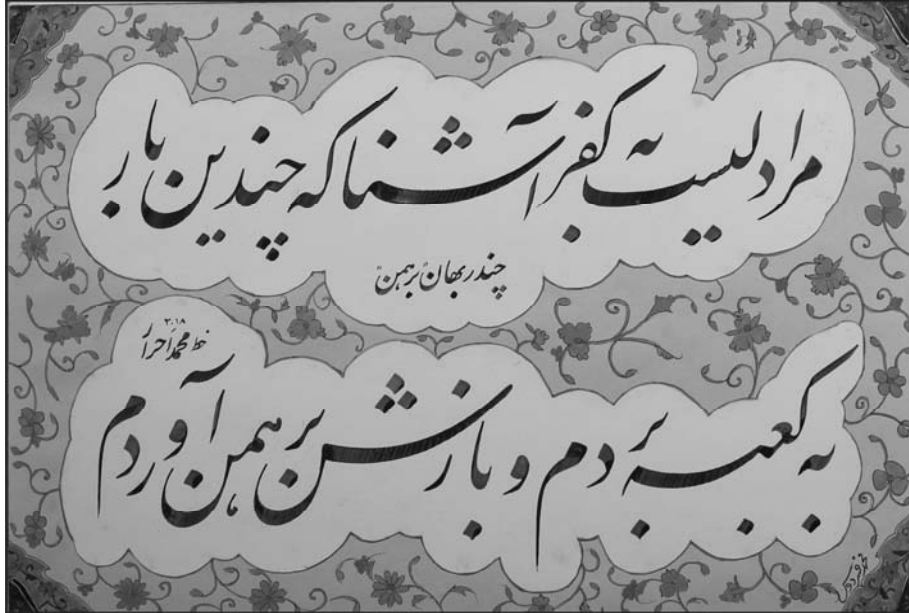 مرا دلیست به کفر آشنا که چندین بار
چندر بھان برہمن
خط محمد احرار
۲۰۱۸
به کعبه بردم و بازش برهمن آوردم